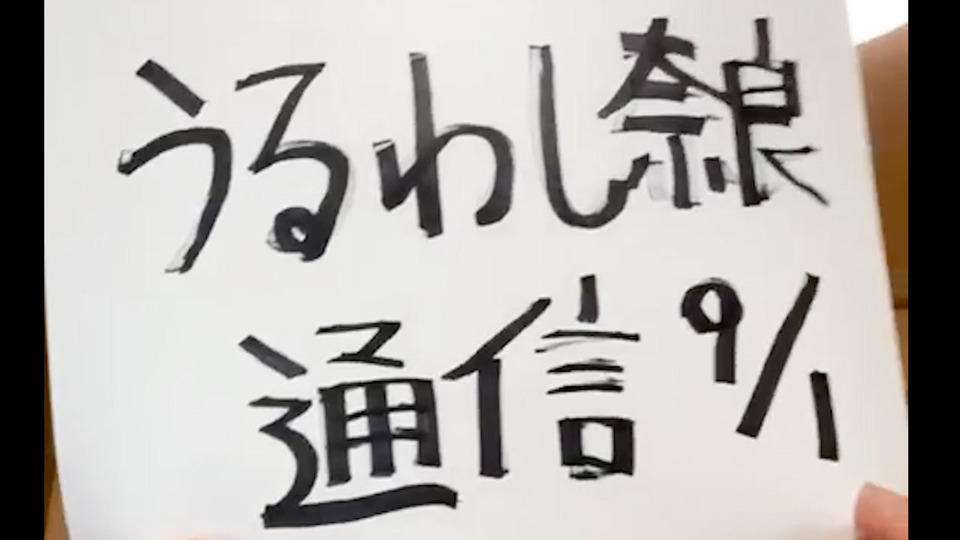 うるわし奈良
通信 9/1